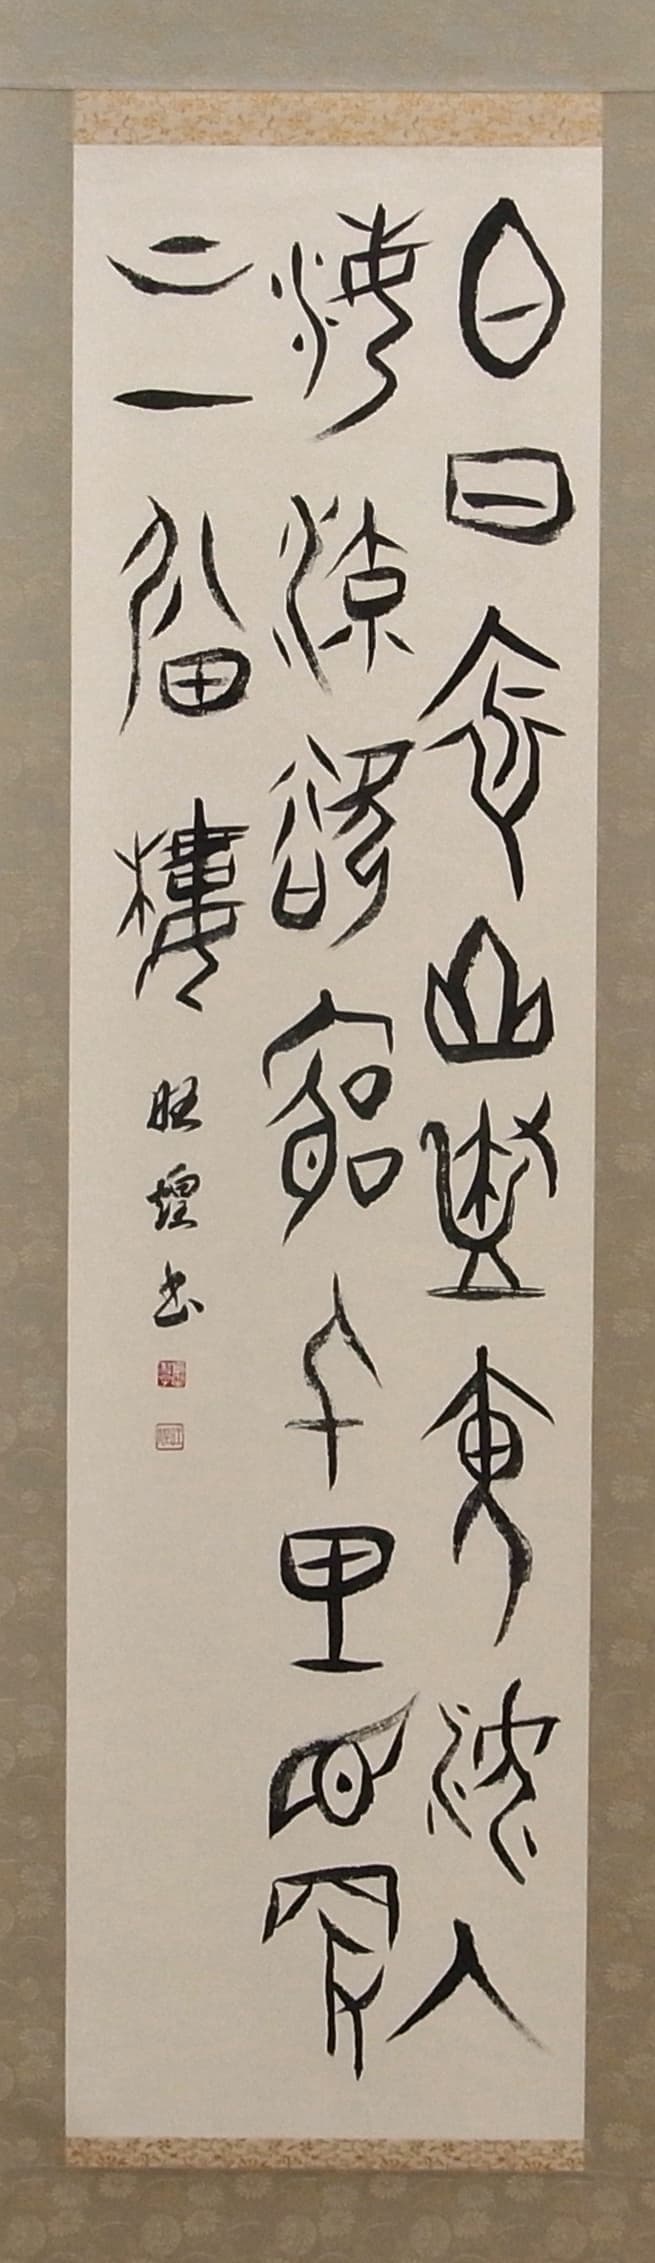 白日依山盡黄河入
海流欲窮千里目更
上一層樓
旺煌書